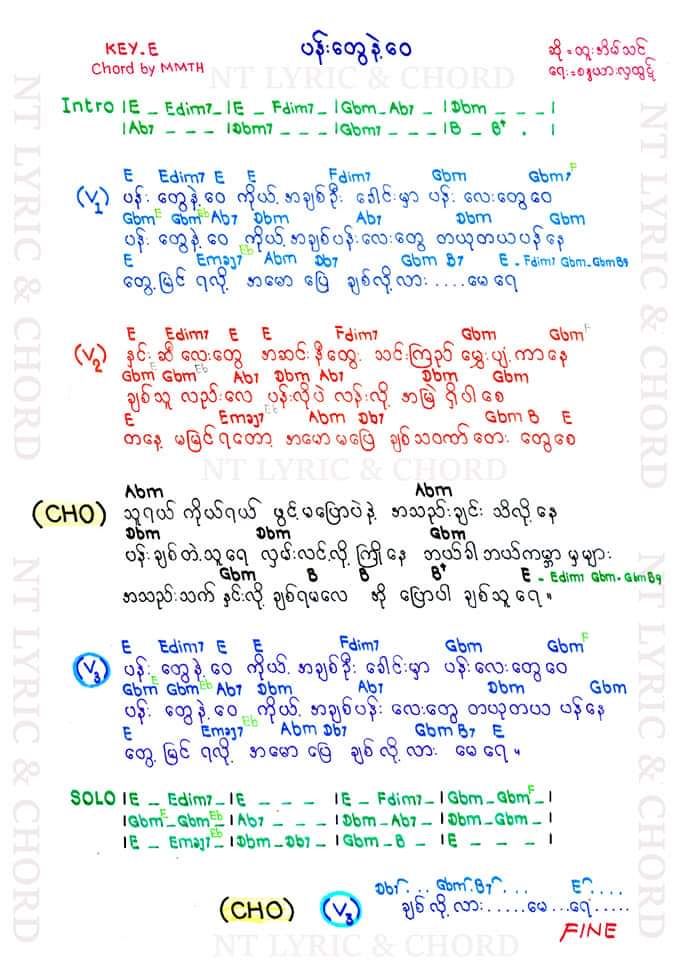 KEY.E
ပန်းတွေနဲ့ဝေ
ဆို = ထူးအိမ်သင်
Chord by MMTH
ရေး =
NT LYRIC & CHORD
Intro |E _ Edim7_|E _ Fdim7_|Gbm_Ab7 _|Dbm _ _ _|
|Ab7 _ _ _|Dbm7 _ _ _|Gbm7 _ _ _|B _ B+ . |
E Edim7 E E Fdim7 Gbm Gbm7 F
(V1) ပန်း တွေနဲ့ ဝေ ကိုယ့် အချစ်ဦး ခေါင်းမှာ ပန်း လေးတွေဝေ
Gbm E Gbm Eb Ab7 Dbm Ab7 Dbm Gbm
ပန်း တွေနဲ့ ဝေ ကိုယ့် အချစ်ပန်းလေးတွေ တယုတယပန်နေ
E Emaj7 Eb Abm Db7 Gbm B7 E - Fdim7 Gbm-GbmB9
တွေ့မြင် ရလို့ အမော ပြေ ချစ်လို့လား ....မေ ရေ
E Edim7 E E Fdim7 Gbm Gbm F
(V2) နှင်း ဆီ လေးတွေ အဆင်း နီထွေး သင်းကြည် မွှေးပျံ့ကာနေ
Gbm E Gbm Eb Ab7 Dbm Ab7 Dbm Gbm
ချစ်သူ လည်းလေ ပန်းလိုပဲ လန်းလို့ အမြဲ ရှိပါစေ
E Emaj7 Eb Abm Db7 Gbm B E
တနေ့ မမြင်ရတော့ အမောမပြေ ချစ်သဝဏ် တွေစေ
Abm Abm
(CHO) သူရယ် ကိုယ်ရယ် ဖွင့်မပြောပဲနဲ့ အသည်းချင်း သိလို့နေ
Dbm Dbm Gbm
ပန်းချစ်တဲ့သူရေ လှမ်းလင့်လို့ကြိုနေ ဘယ်ခါ ဘယ်ကမ္ဘာ မှများ
Gbm B B B+ E - Edim7 Gbm-GbmB9
အသည်းသက် နှင်းလို့ ချစ်ရမလေ အို ပြောပါ ချစ်သူရေ။
E Edim7 E E Fdim7 Gbm Gbm F
(V3) ပန်း တွေနဲ့ ဝေ ကိုယ့် အချစ်ဦး ခေါင်းမှာ ပန်းလေးတွေဝေ
Gbm E Gbm Eb Ab7 Dbm Ab7 Dbm Gbm
ပန်း တွေနဲ့ ဝေ ကိုယ့် အချစ်ပန်း လေးတွေ တယုတယ ပန်နေ
E Emaj7 Eb Abm Db7 Gbm B7 E
တွေ့ မြင် ရလို့ အမော ပြေ ချစ်လို့လား မေ ရေ။
SOLO |E _ Edim7_|E _ _ _|E _ Fdim7_|Gbm_Gbm F_|
|Gbm E_Gbm Eb_|Ab7 _ _ _|Dbm_Ab7_|Dbm_Gbm_|
|E _ Emaj7 Eb|Dbm_Db7_|Gbm_B_|E _ _ _|
Db7... Gbm.B7... E....
(CHO) (V3) ချစ်လို့လား.....မေ ..ရေ.....
FINE
NT LYRIC & CHORD
NT LYRIC & CHORD
NT LYRIC & CHORD
NT LYRIC & CHORD
NT LYRIC & CHORD
NT LYRIC & CHORD